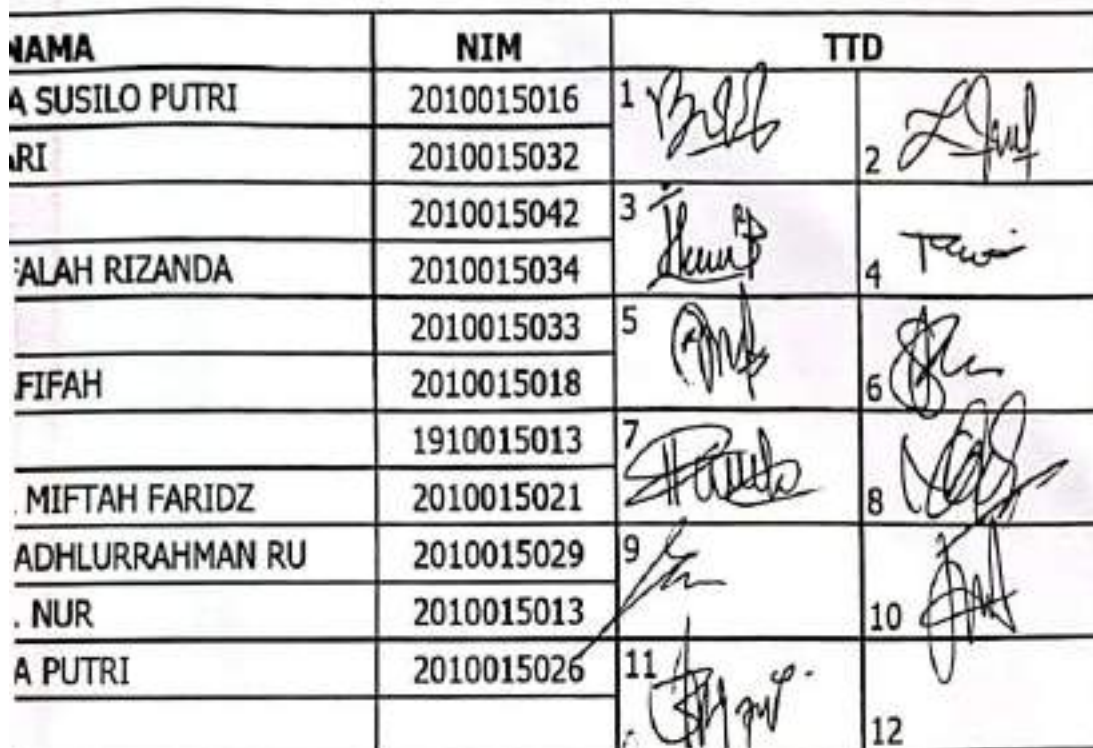 NAMA NIM TTD
A SUSILO PUTRI 2010015016 1
ARI 2010015032 2
2010015042 3
FALAH RIZANDA 2010015034 4
2010015033 5
FIFAH 2010015018 6
1910015013 7
. MIFTAH FARIDZ 2010015021 8
ADHLURRAHMAN RU 2010015029 9
. NUR 2010015013 10
A PUTRI 2010015026 11
12